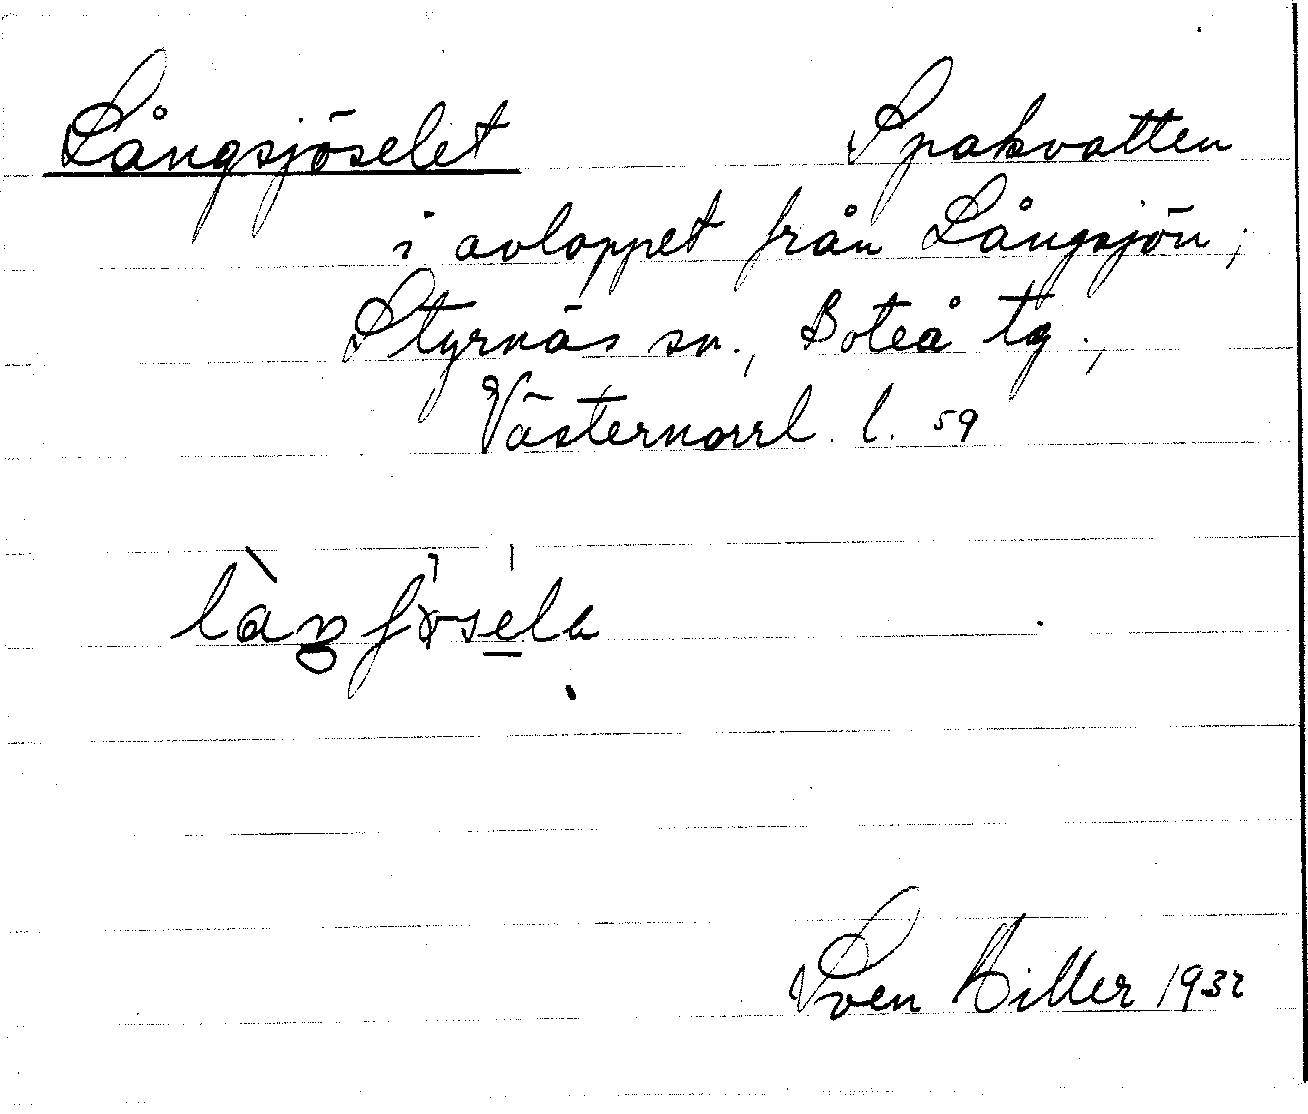 Långsjöselet Spakvatten
i avloppet från Långsjön;
Styrnäs sn., Boteå tg.,
Västernorrl. l. 59
Sven Hiller 1932